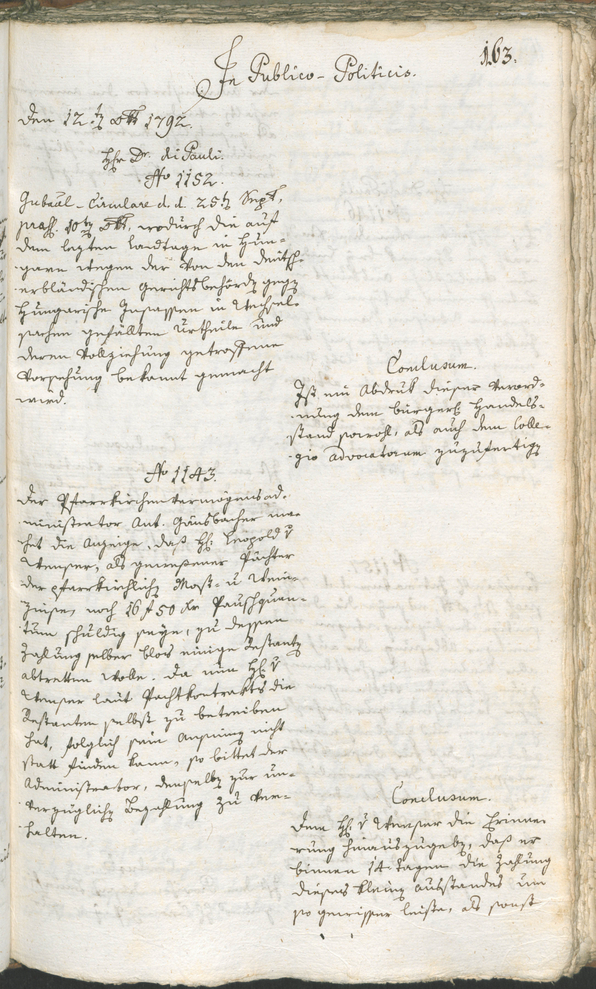 163.
In Publico-Politicis.
Den 12 t. 8br. 1792.
Hr. Dr. di Pauli.
No 1152.
Gubial-Circulare d. d. 25t Sept.,
præs. 10t 8br., wodurch die auf
dem lezten Landtage in Hun-
garn wegen der von den deutsch-
erbländischen Gerichtsbehördn gegn
Hungarische Insassen in Wechsel-
sachen gefällten Urtheile und
deren Vollziehung getroffene
Vorsehung bekannt gemacht
wird.
Conclusum.
Ist ein Abdruk dieser Verord-
nung dem bürgerl. Handels-
stand sowohl, als auch dem Colle-
gio Advocatorum zuzufertign
No 1143.
Der Pfarrkirchenvermögensad-
ministrator Ant. Gänsbacher ma-
chet die Anzeige, daß Hr. Leopold v
Wenser, als gewesener Pächter
der pfarrkirchlichn Most- u. Wein-
zinsen noch 26 f 50 kr Pauschquan-
tum schuldig seye, zu dessen
Zahlung selber blos einige Restantn
abtretten wolle. Da nun Hr. v
Wenser laut Pachtkontrakts die
Restanten selbst zu betreiben
hat, folglich sein Ansinnen nicht
statt finden kann, so bittet der
Administrator, denselbn zur un-
verzüglichn Bezahlung zu ver-
halten.
Conclusum.
Dem Hr. v Wenser die Erinne-
rung hinauszugebn, daß er
binnen 14 Tagen die Zahlung
dieses kleinn Ausstandes um
so gewisser leiste, als sonst